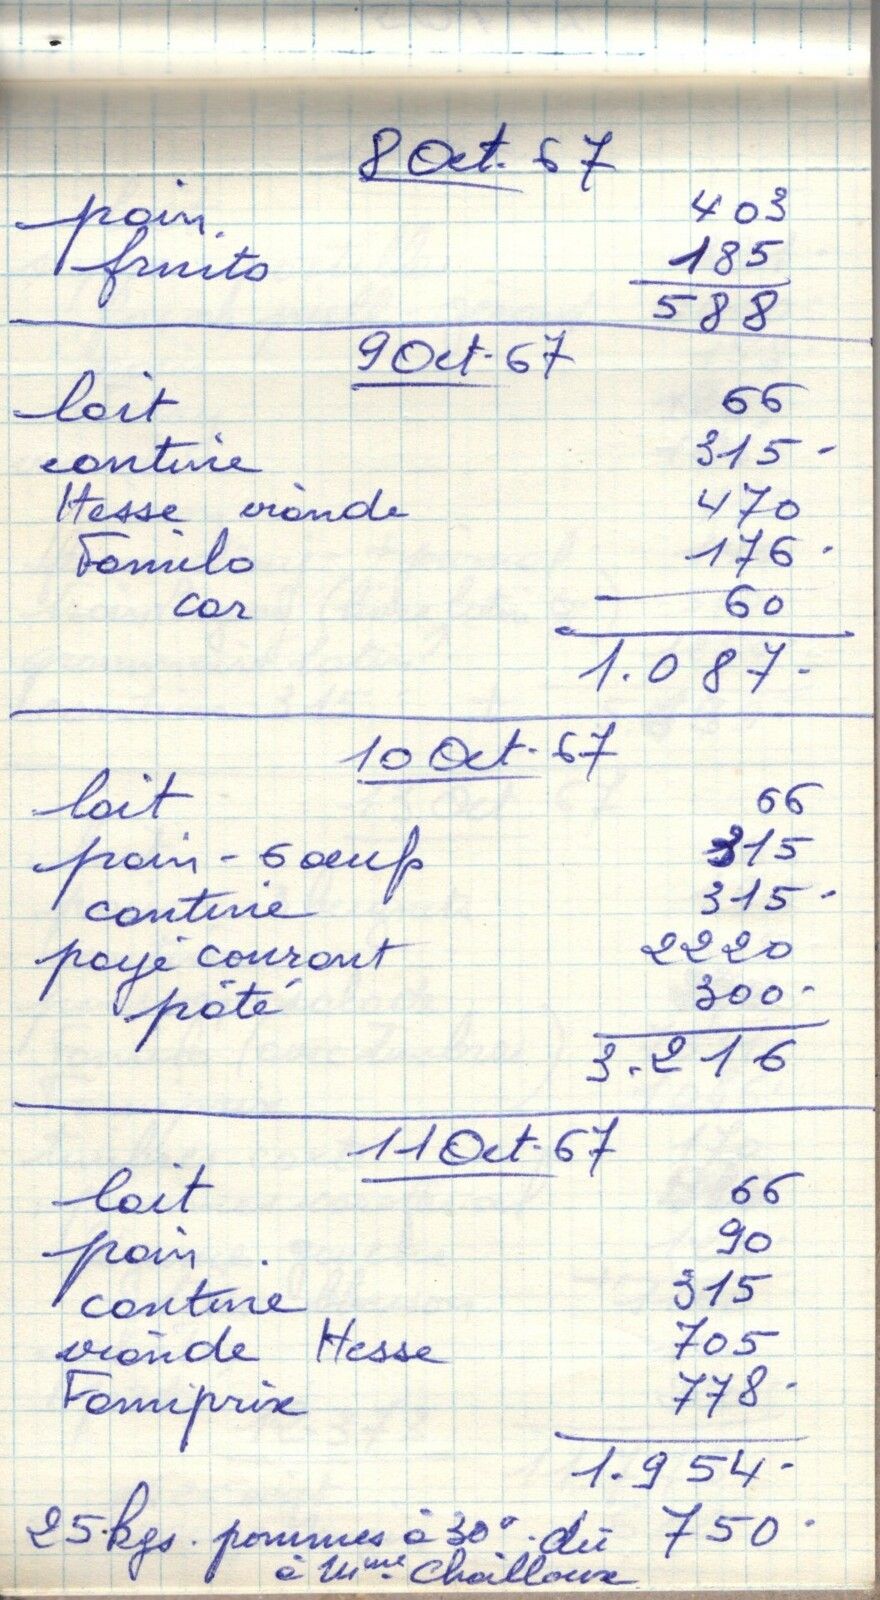 8 Oct. 67
pain. 403
fruits 185
588
9 Oct. 67
lait 66
cantine 315 -
Hesse viande 470
Familo 176 -
car 60
1.087 -
10 Oct. 67
lait 66
pain - 6 œufs 315
cantine 315 -
payé courant 2220
pâté 300 -
3.216
11 Oct. 67
lait 66
pain . 90
cantine 315
viande Hesse 705
Famiprix 778 -
1.954 -
25 kgs. pommes à 30° - dû 750 -
à Mme Chailloux